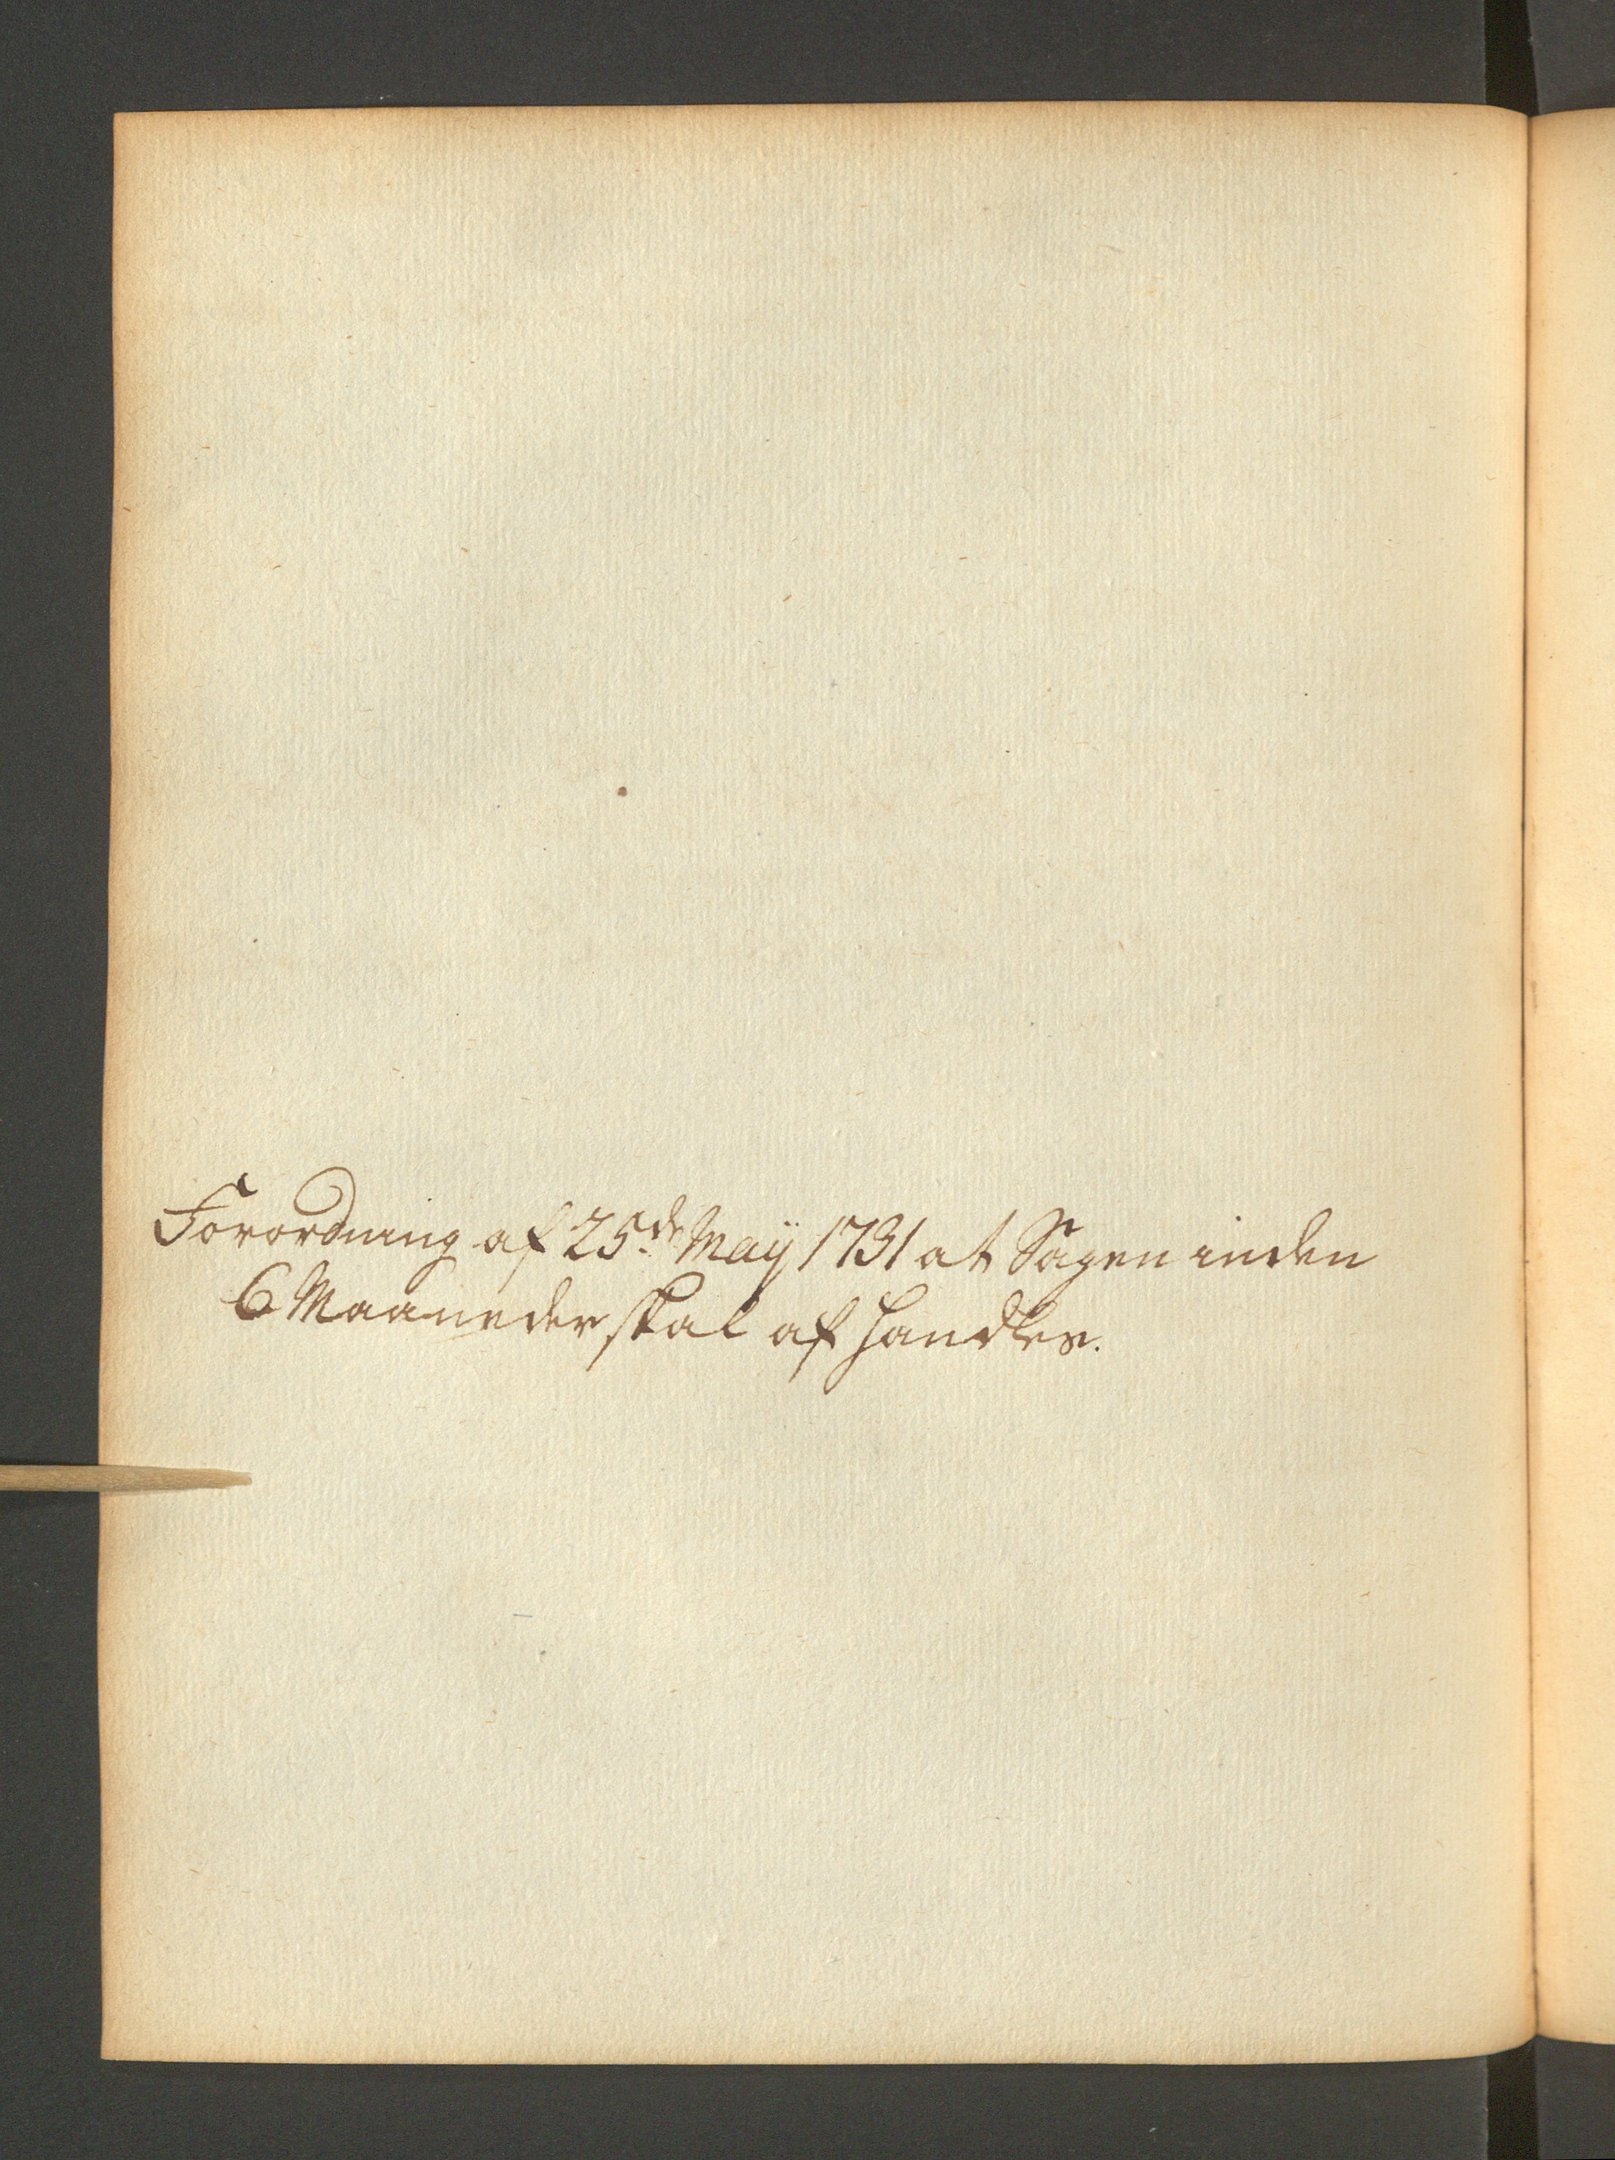 Forordning af 25de Maÿ 1731 at Sagen inden
6 Maaneder skal af handles.